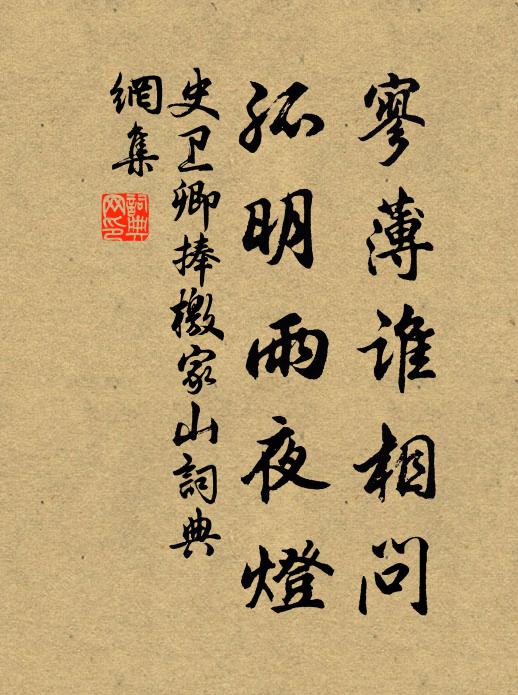 寥薄谁相问
孤明雨夜燈
史卫卿捧檄家山詞典
網集
詞典
网印